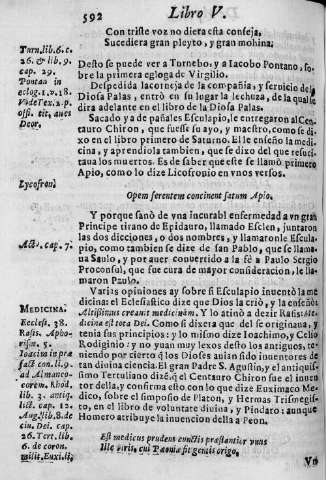 592 Libro V.
Con triste voz no diera esta conseja,
Sucediera gran pleyto, y gran mohina.
Turn. lib. 6. c.
26. & lib. 9.
cap. 29.
Pontan in
eclog. 1. v. 18.
Vide Tex. 2. p.
offi. tit. aues
Deor.
Desto se puede ver a Turnebo, y a Iacobo Pontano, so-
bre la primera egloga de Virgilio.
Despedida la corneja de la compañia, y seruicio de la
Diosa Palas, entrò en su lugar la lechuza, de la qual se
dira adelante en el libro de la Diosa Palas.
Sacado ya de pañales Esculapio, le entregaron al Cen
tauro Chiron, que fuesse su ayo, y maestro, como se di-
xo en el libro primero de Saturno. El le enseño la medi-
cina, y aprendiola tambien, que se dixo del que resuci-
taua los muertos. Es de saber que este se llamò primero
Apio, como lo dize Licofronio en vnos versos.
Lycofron.
Opem ferentem concinent fatum Apio.
Y porque sanò de vna incurabl enfermedad a vn gran
Principe tirano de Epidauro, llamado Esclen, juntaron
las dos dicciones, o dos nombres, y llamaronle Escula-
pio, como tambien se dize de san Pablo, que se llama-
ua Saulo, y por auer conuertido a la fè a Paulo Sergio
Proconsul, que fue cura de mayor consideracion, le lla-
maron Paulo.
Act. cap. 7.
Varias opiniones ay sobre si Esculapio inuentò la me
dicina: el Eclesiastico dize que Dios la criò, y la enseñò
Altissimus creauit medicinam. Y lo atinò a dezir Rasis: Me
dicina est tota Dei. Como si dixera que del se originaua, y
tenia sus principios: y lo mismo dize Ioachimo, y Celio
Rodigino: y no yuan muy lexos desto los antiguos, te-
niendo por cierto q los Dioses auian sido inuentores de
tan diuina ciencia. El gran Padre S. Agustin, y el antiquis-
simo Tertuliano dizē, q el Centauro Chiron fue el inuen
tor della, y confirma esto con lo que dize Euximaco Me-
dico, sobre el simposio de Platon, y Hermas Trismegis-
to, en el libro de voluntate diuina, y Pindaro: aunque
Homero atribuye la inuencion della a Peon.
MEDICINA.
Ecclest. 38.
Rasis. Apho-
rism. 5.
Ioacim in præ
fact con. li. 9.
ad Almanco-
corem. Rhod.
lib. 3. antiq.
lict. cap. 12.
Aug. lib. 8. de
ciu. Dei. cap.
26. Tert. lib.
6. de coron.
milie, Euxi. li.
Est medicus prudens cunctis præstantior vnus
Ille viris, cui Pæonia fit gentis origo.